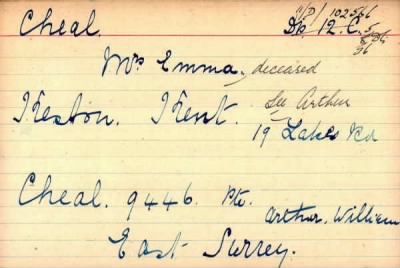 Cheal. 102566
Dp. 12. C.
Mrs Emma, deceased
Keston. Kent. See Arthur
19 Lakes Rd
Cheal. 9446. Pte. Arthur. William
East Surrey.